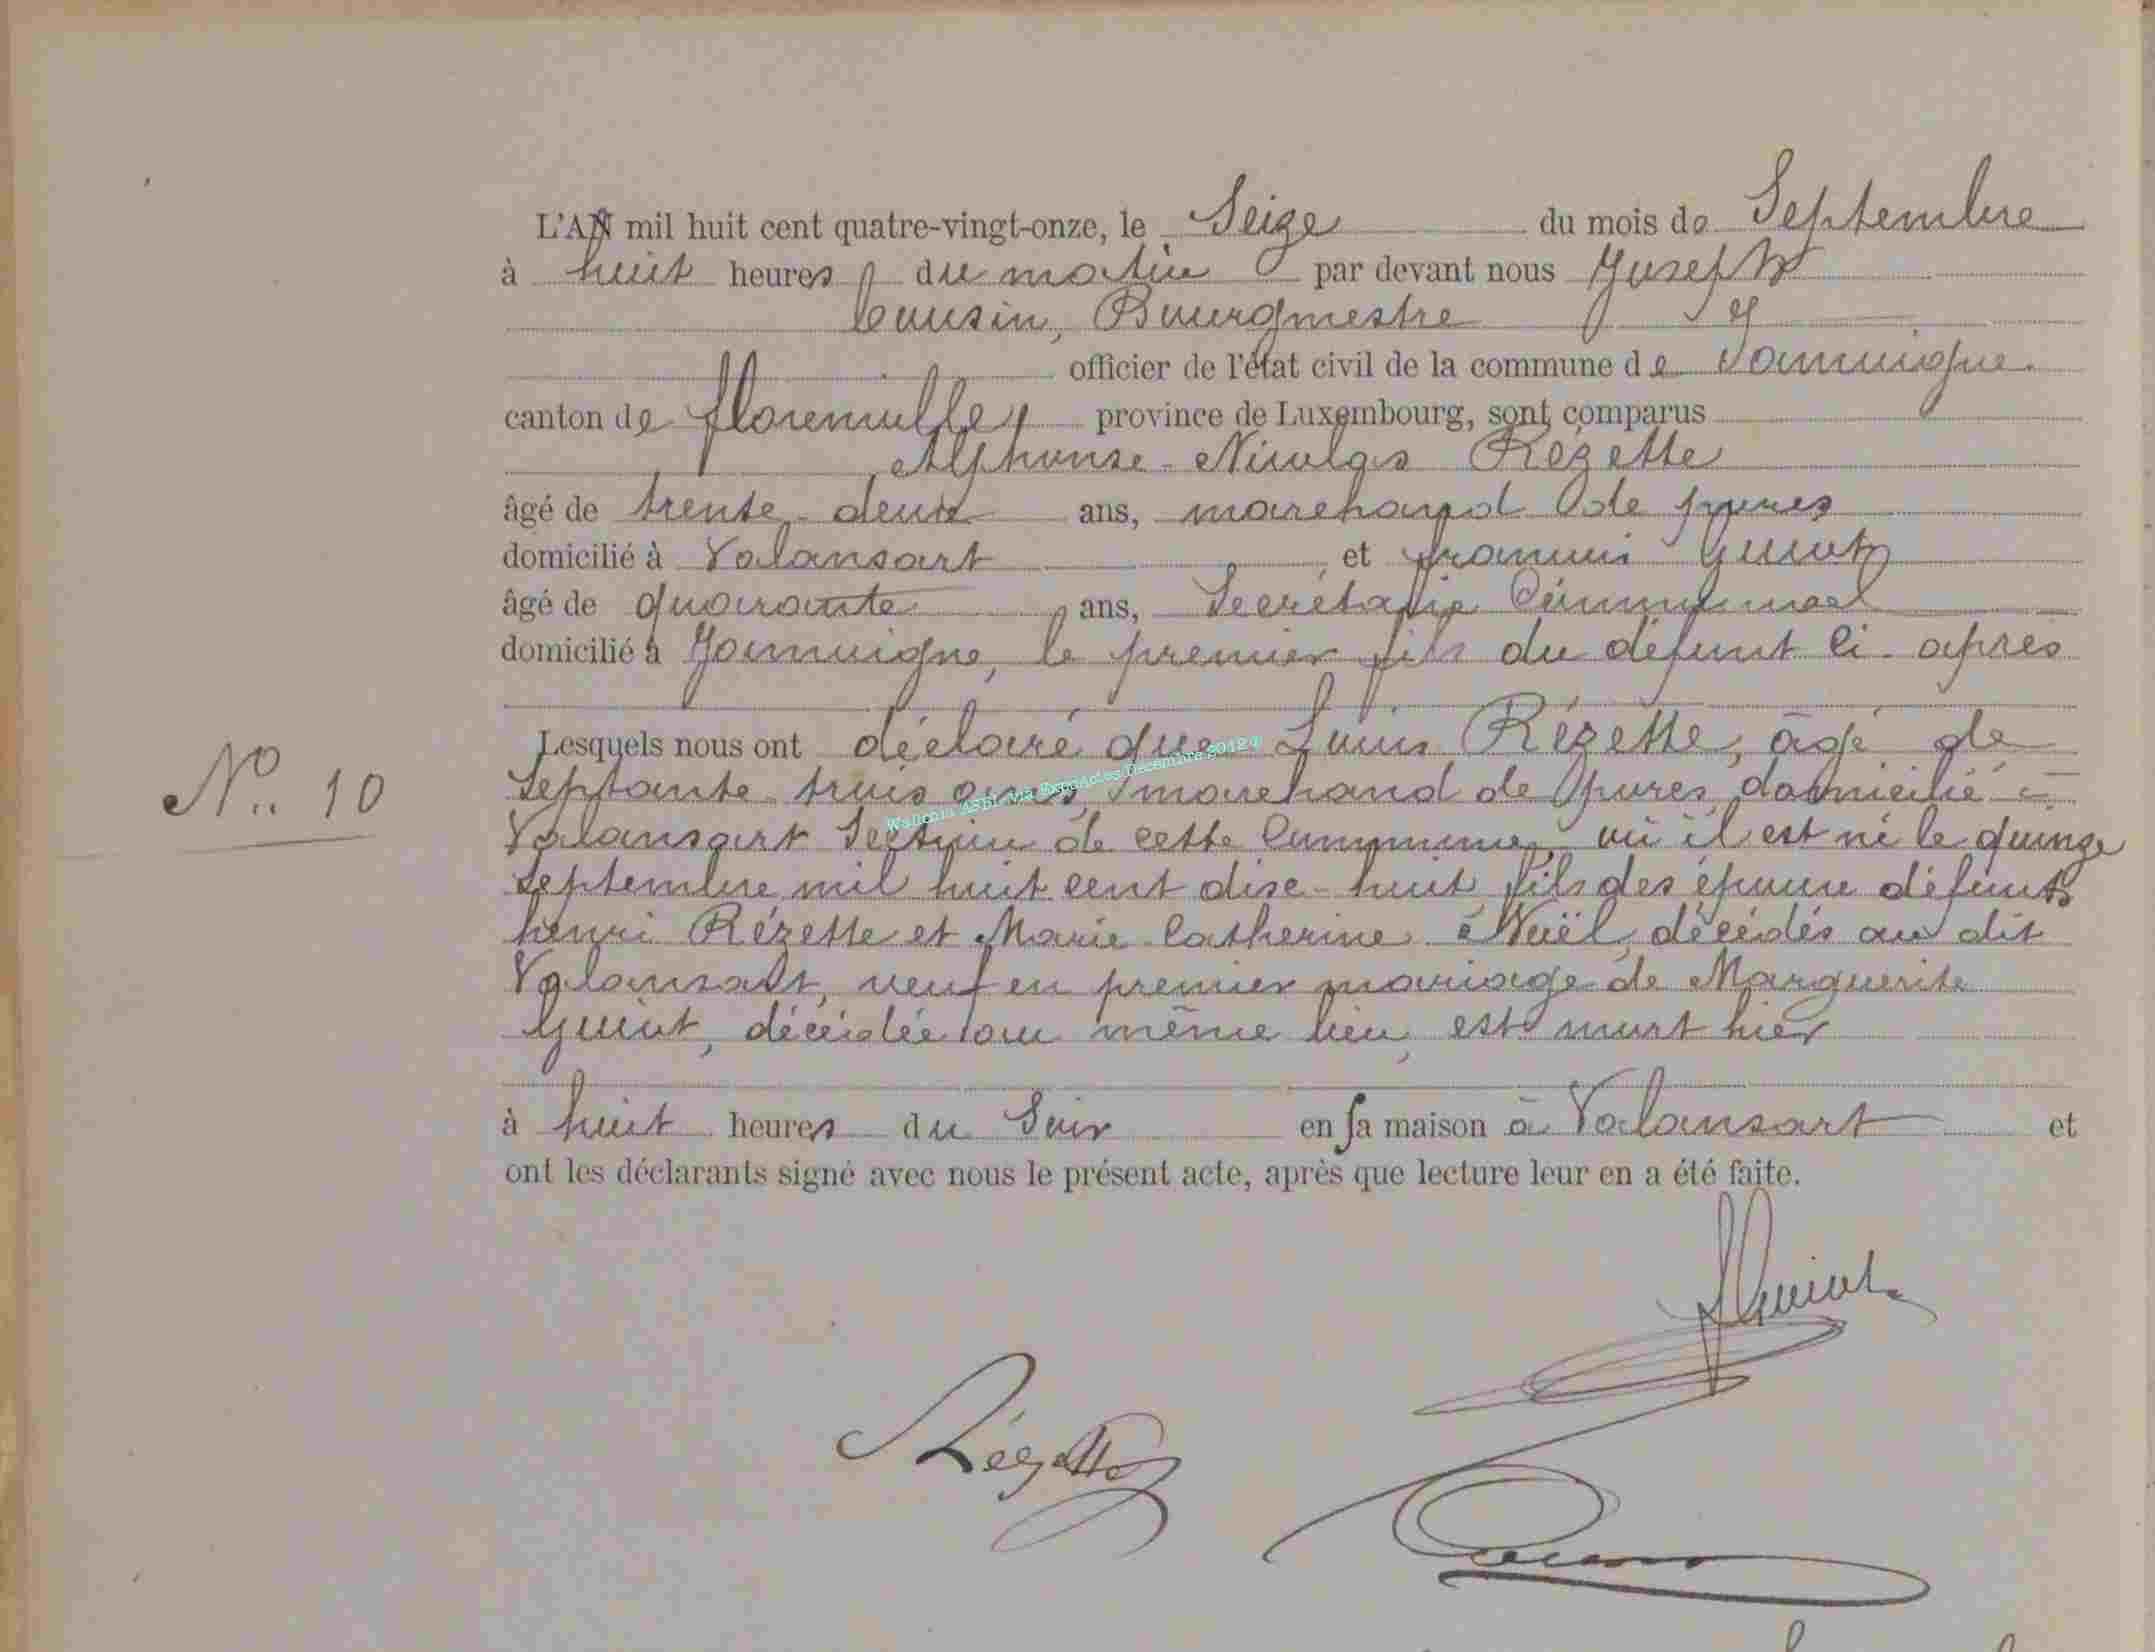 L'AN mil huit cent quatre-vingt-onze, le Seize du mois de Septembre
à huit heures du matin par devant nous Joseph
Cousin, Bourgmestre
officier de l'état civil de la commune de Jamoigne
canton de florenville, province de Luxembourg, sont comparus
Alphonse-Nicolas Rézette
âgé de trente-deux ans, marchand de porcs
domicilié à Valansart et francois Guiot
âgé de quarante ans, Secrétaire Communal
domicilié à Jamoigne, le premier fils du défunt ci-après
Lesquels nous ont déclaré que Louis Rézette, âgé de
N° 10
Septante-trois ans, marchand de porcs, domicilié à
Valansart Section de cette Commune, où il est né le quinze
Septembre mil huit cent dix-huit, fils des époux défunts
henri Rézette et Marie-Catherine Noël, décédés au dit
Valansart, veuf en premier mariage de Marguerite
Guiot, décédée au même lieu, est mort hier
à huit heures du Soir en sa maison à Valansart et
ont les déclarants signé avec nous le présent acte, après que lecture leur en a été faite.
Guiot
Rézette
Wallonia ASBL via ExpoActes Décembre 2012